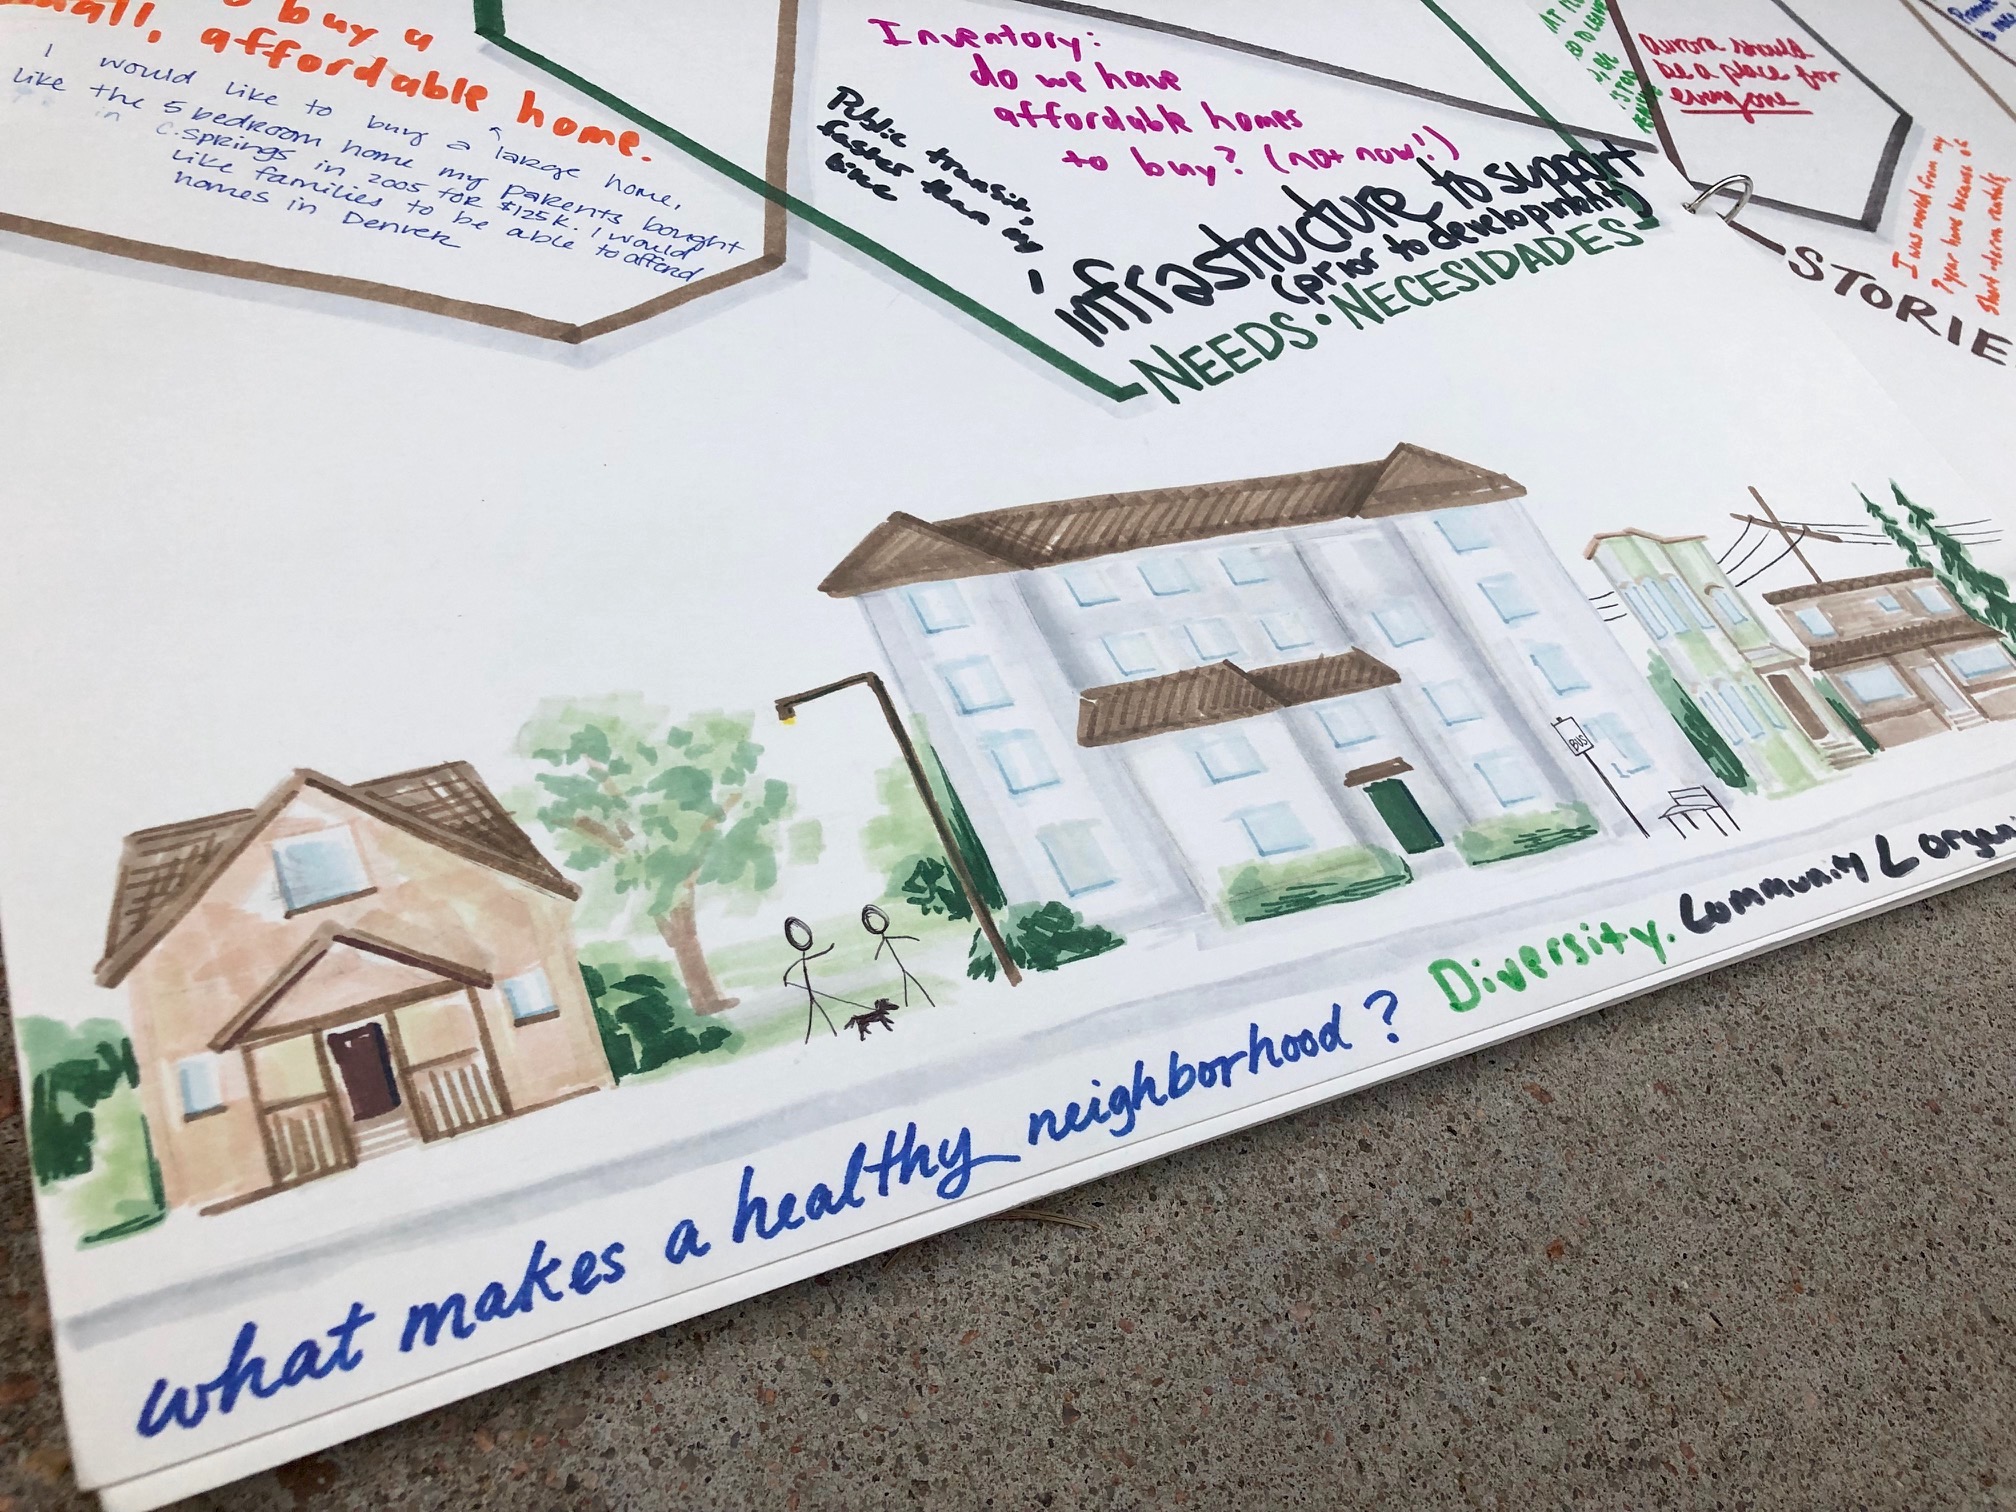 buy a
small, affordable home.
I would like to buy a large home,
like the 5 bedroom home my parents bought
in C. Springs in 2005 for $125k. I would
like families to be able to afford
homes in Denver
Inventory:
do we have
affordable homes
to buy? (not now!)
Public transit,
faster than
bike
infrastructure to support
(prior to development)
NEEDS · NECESIDADES
aurora should
be a place for
everyone
STORIE
I was moved from my
7 year home because of
short term rentals
BUS
what makes a healthy neighborhood? Diversity. Community